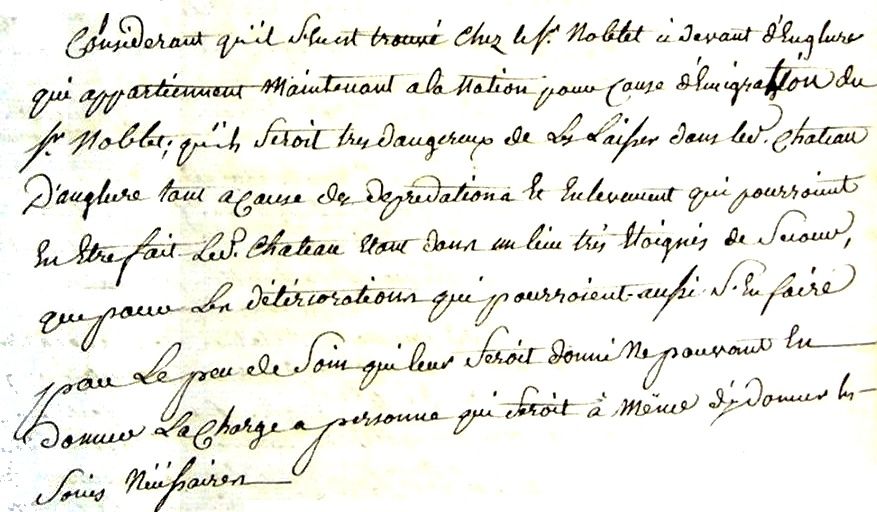 Considerant qu'il s'en est trouvé chez le Sr. Noblet ci devant d'Englure
qui appartiennent maintenant a la Nation pour cause d'Emigration du
Sr. Noblet; qu'ils seroit tres dangereux de les Laisser dans led. Chateau
D'anglure tant a cause des depredations et Enlevement qui pourroient
en Etre fait Led. Chateau etant dans un lieu très Eloignés de Secour,
que pour Les détériorations qui pourroient aussi s'En faire
par Le peu de Soin qui leur seroit donné Ne pouvant En
donner La Charge a personne qui seroit à même d'y donner les
Soins Nécéssaires